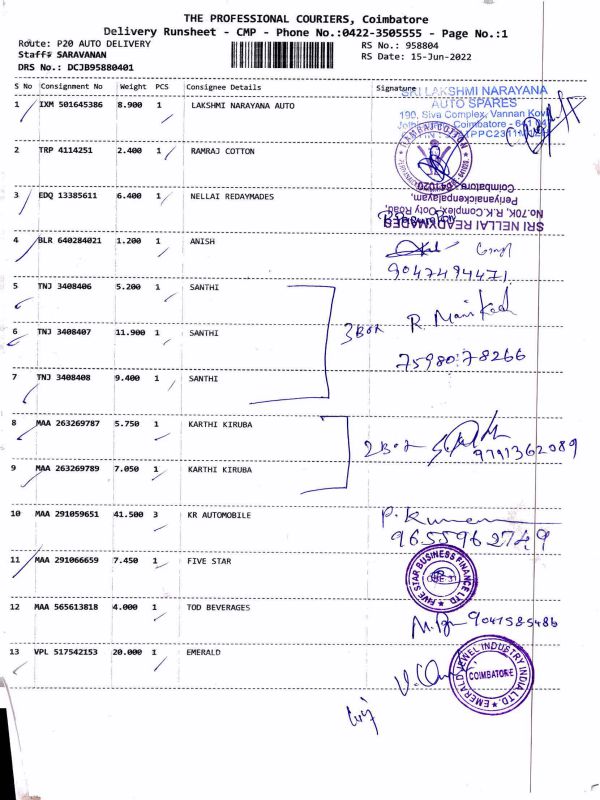 THE PROFESSIONAL COURIERS, Coimbatore
Delivery Runsheet - CMP - Phone No.:0422-3505555 - Page No.:1
Route: P20 AUTO DELIVERY
RS No.: 958804
Staff# SARAVANAN
RS Date: 15-Jun-2022
DRS No.: DCJB95880401
S No Consignment No Weight PCS Consignee Details Signature
SRI LAKSHMI NARAYANA
AUTO SPARES
1 IXM 501645386 8.900 1 LAKSHMI NARAYANA AUTO
190, Siva Complex, Vannan Kovil
Coimbatore - 641
2 TRP 4114251 2.400 1 RAMRAJ COTTON
RAMRAJ COTTON
3 EDQ 13385611 6.400 1 NELLAI REDAYMADES
SRI NELLAI READYMADES
No.70K, R.K.Complex, Ooty Road,
Periyanaickenpalayam,
Coimbatore - 641020
4 BLR 640284021 1.200 1 ANISH
9047494471
5 TNJ 3408406 5.200 1 SANTHI
6 TNJ 3408407 11.900 1 SANTHI
3 Box R. Manikad
7598078266
7 TNJ 3408408 9.400 1 SANTHI
8 MAA 263269787 5.750 1 KARTHI KIRUBA
2 Box
9791362089
9 MAA 263269789 7.050 1 KARTHI KIRUBA
10 MAA 291059651 41.500 3 KR AUTOMOBILE
P. Kumar
9655962749
11 MAA 291066659 7.450 1 FIVE STAR
FIVE STAR BUSINESS FINANCE LTD.
CBE-31
12 MAA 565613818 4.000 1 TOD BEVERAGES
9041585486
13 VPL 517542153 20.000 1 EMERALD
EMERALD JEWEL INDUSTRY INDIA LTD.
COIMBATORE